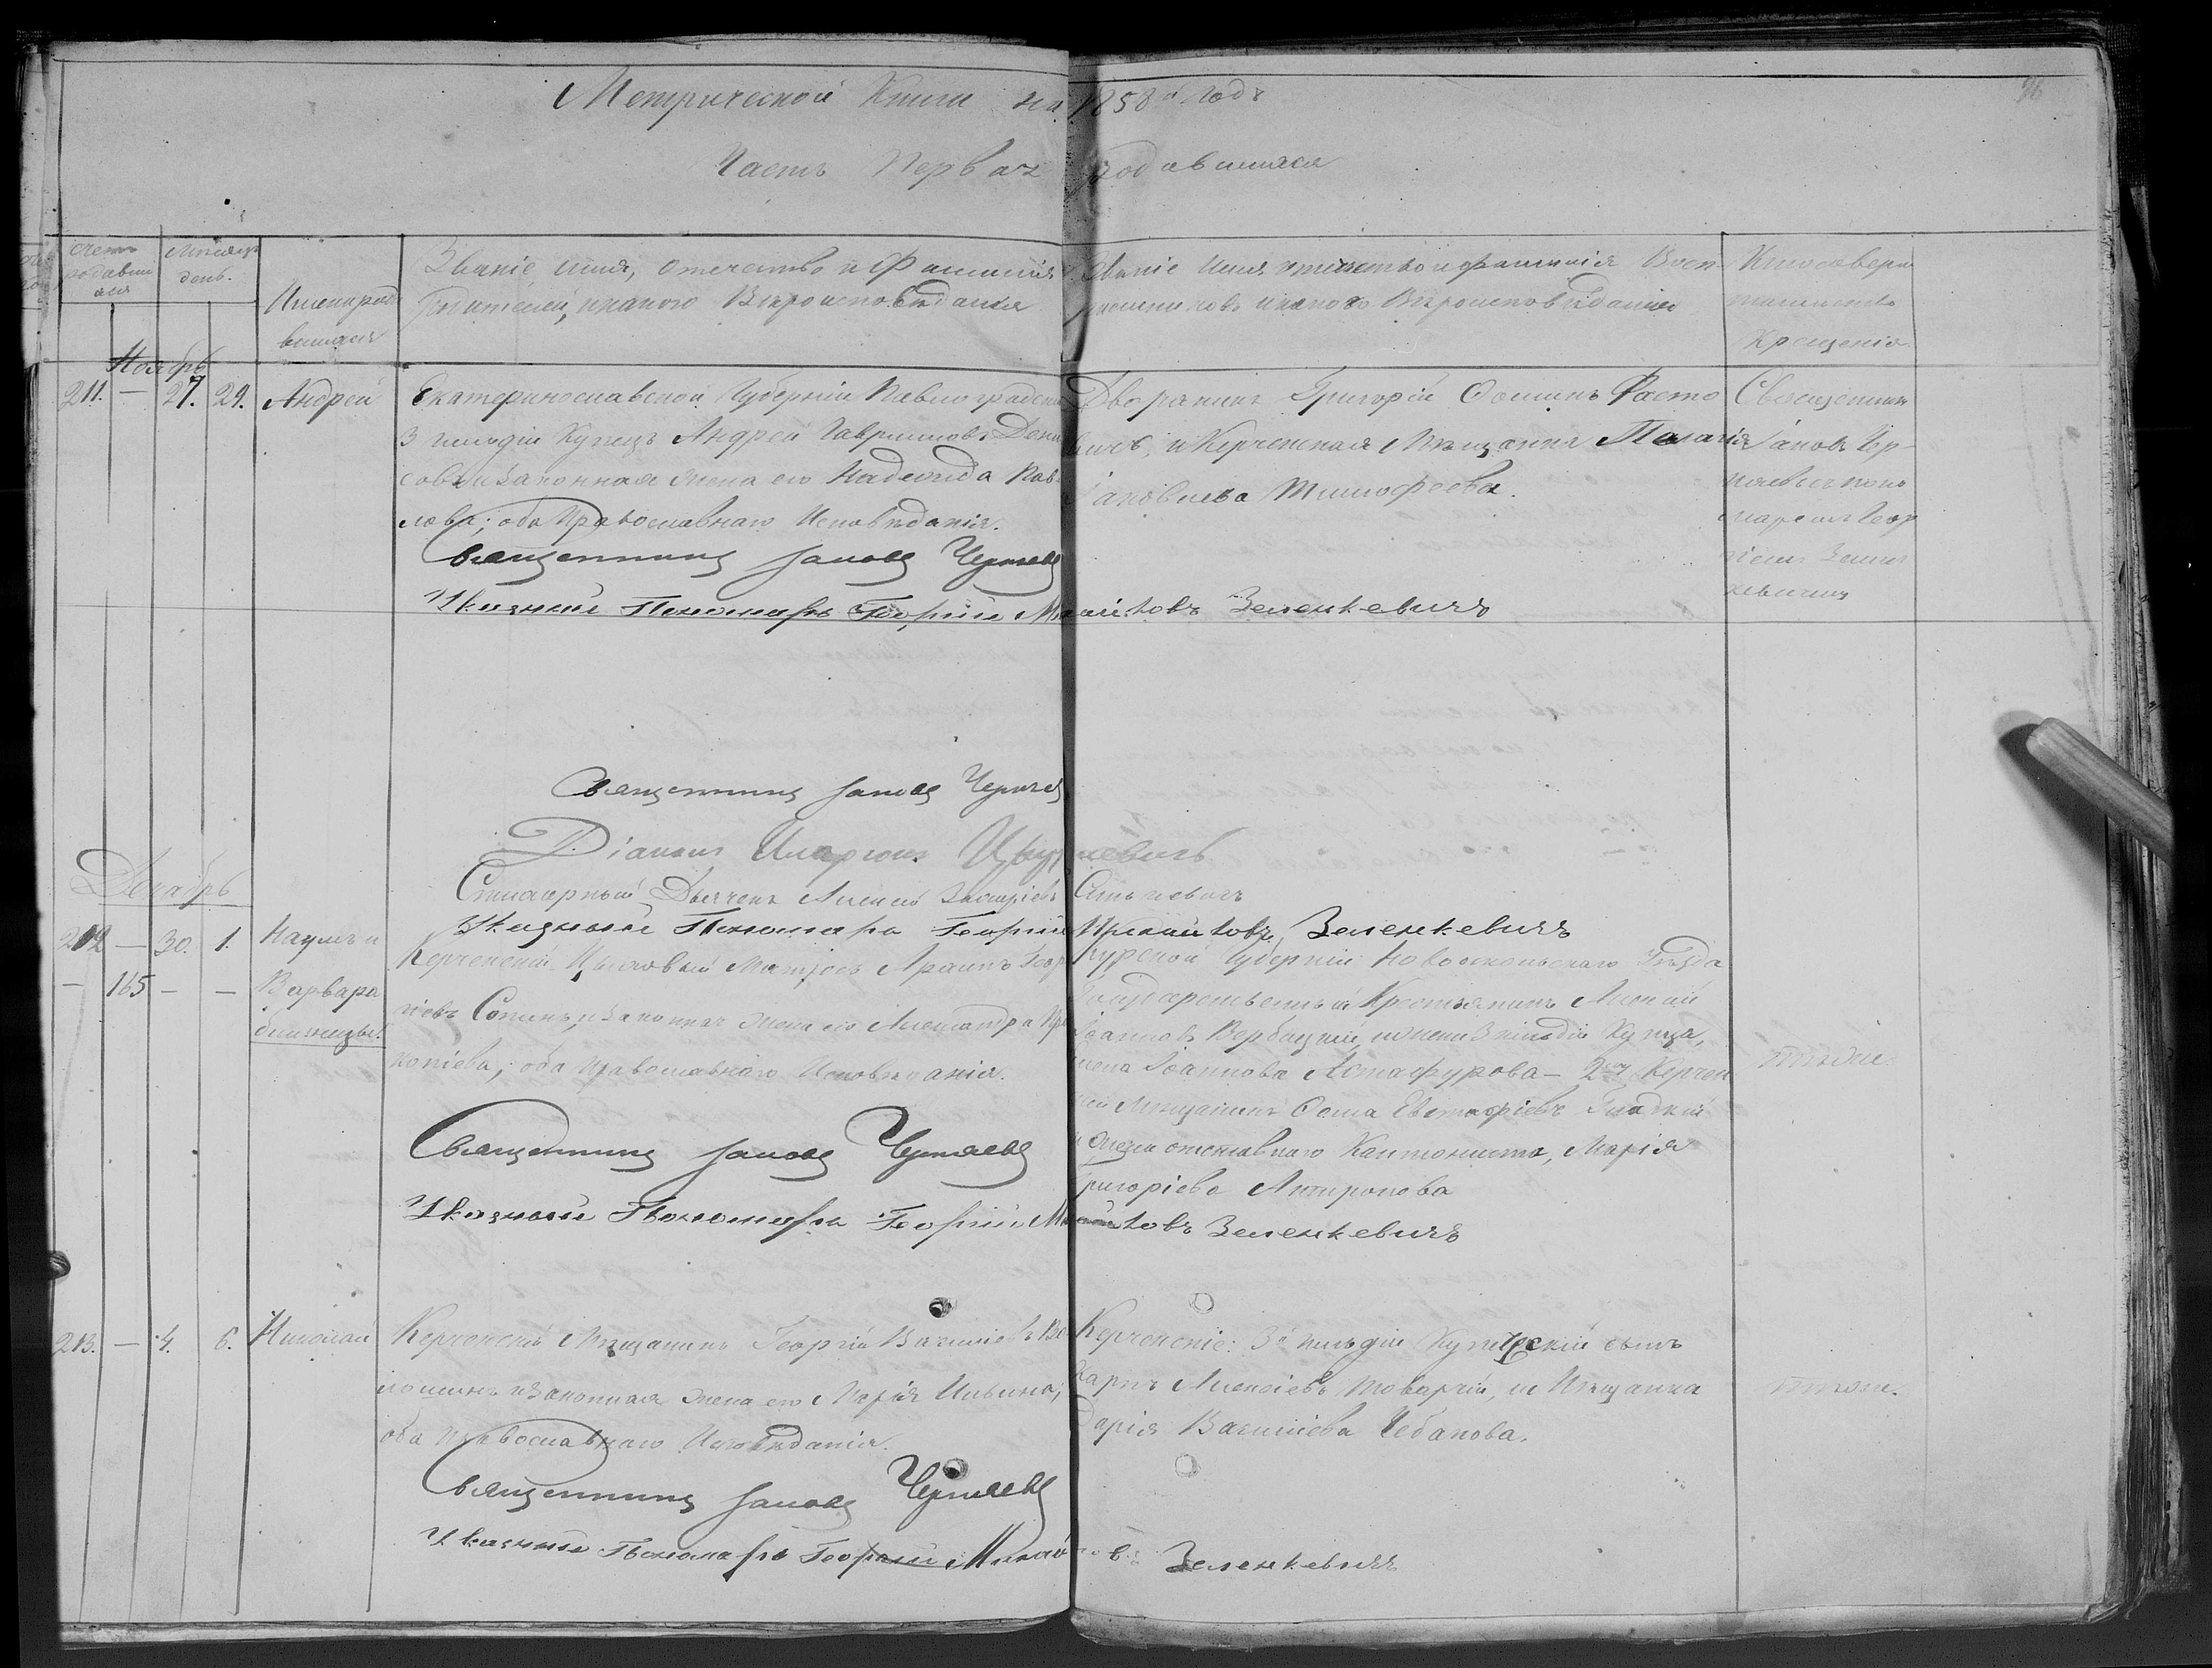 Метрической Книги на 1858й Годъ
96
Часть Первая родившихся
Счетъ родившихся
Мѣсяцъ день.
Имена родившихся
Званіе, имя, отечество и Фамилія Родителей, и какого Вѣроисповѣданія
Званіе Имя отчество и фамилія Воспріемниковъ и какого Вѣроисповѣданія
Кто совершалъ таинство Крещенія
Ноябрь
211. — 27. 29. Андрей
Екатеринославской Губерніи Павлоградскій
3 гильдіи Купецъ Андрей Гавриловъ Дени
совъ и Законная жена его Надежда Пав
лова; оба Православнаго Исповѣданія.
Священникъ Іаковъ Черняевъ
Указный Пономарь Георгій Михайловъ Зеленкевичъ
Дворянинъ Григорій Ѳоминъ Фасто
вичъ, и Керченская Мѣщанка Пелагія
Іаковлева Тимофеева.
Священникъ
Іаковъ Чер
няевъ съ поно
маремъ Геор
гіемъ Зелен
кевичемъ
Священникъ Іаковъ Черняевъ
Діаконъ Иларіонъ
Дьячекъ Алексѣй
Указный Пономарь Георгій Михайловъ Зеленкевичъ
Декабрь
212 — 30. 1. Наумъ и
— 165 — — Варвара
близнецы.
Керченскій Матросъ Геор
гіевъ Сотинъ, и Законная жена его Александра Про
копіева; оба Православнаго Исповѣданія.
Священникъ Іаковъ Черняевъ
Указный Пономарь Георгій Михайловъ Зеленкевичъ
Курской Губерніи Новооскольскаго Уѣзда
Государственный Крестьянинъ
Іоанновъ Вербицкій, и жена 3 гильдіи Купца,
Іоаннова Астафурова — 2й Керчен
скій Мѣщанинъ Ѳома Евстафіевъ Гладкій
и Жена отставнаго Кантониста, Марія
Григоріева Антропова
тѣже.
213. — 4. 6. Николай
Керченскій Мѣщанинъ Георгій Василіевъ Во
лошинъ и Законная жена его Марія Ильина;
оба Православнаго Исповѣданія.
Священникъ Іаковъ Черняевъ
Указный Пономарь Георгій Михайловъ Зеленкевичъ
Керченскіе: 3й гильдіи Купеческій сынъ
Карпъ Алексіевъ Товарчій, и Мѣщанка
Дарія Василіева Чебанова.
тѣже.